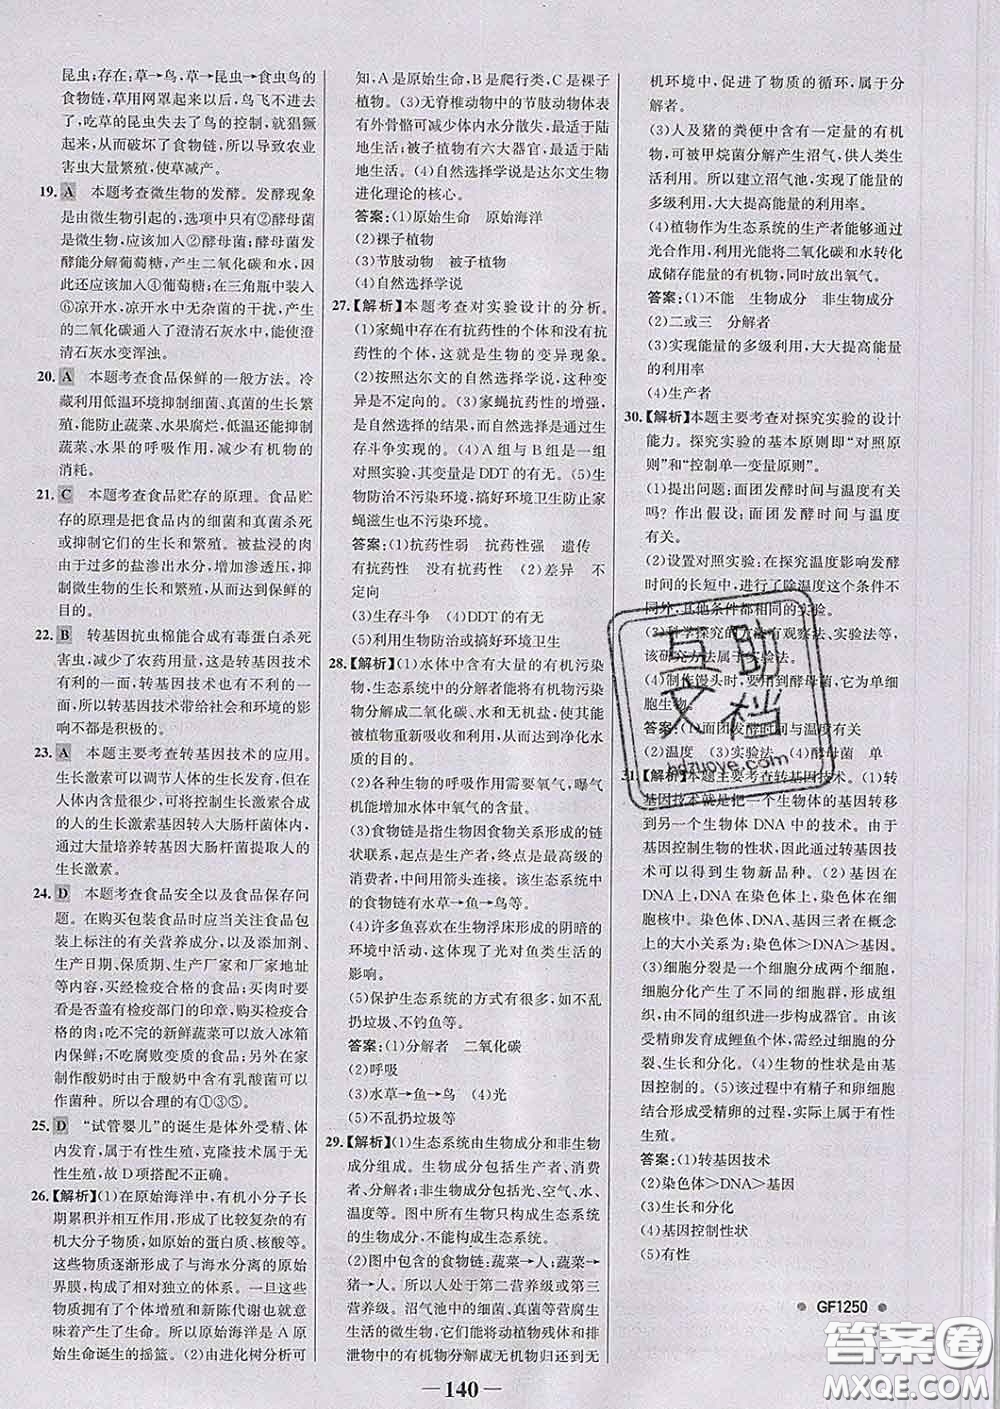 昆虫;存在;草→鸟,草→昆虫→食虫鸟的
食物链,草用网罩起来以后,鸟飞不进去,
吃草的昆虫失去了鸟的控制,就猖獗
起来,从而破坏了食物链,所以导致农业
害虫大量繁殖,使草减产。
19. A 本题考查微生物的发酵。发酵现象
是由微生物引起的,选项中只有②酵母菌
是微生物,应该加入②酵母菌;酵母菌发
酵能分解葡萄糖,产生二氧化碳和水,所
以,还应该加入④葡萄糖;在三角瓶中装入
⑥凉开水,凉开水中无杂菌的干扰,产生
的二氧化碳通入了澄清石灰水中,能使澄
清石灰水变浑浊。
20. A 本题考查食品保鲜的一般方法。冷
藏利用低温环境抑制细菌、真菌的生长繁
殖,能防止蔬菜、水果腐烂,低温还能抑制
蔬菜、水果的呼吸作用,减少对有机物的
消耗。
21. C 本题考查食品贮存的原理。食品贮
存的原理是把食品内的细菌和真菌杀死
或抑制它们的生长和繁殖。被盐浸的肉
由于过多的盐渗出水分,增加渗透压,抑
制微生物的生长和繁殖,达到了保鲜的目
的。
22. B 转基因抗虫棉能合成有毒蛋白杀死
害虫,减少了农药用量,这是转基因技术
有利的一面,转基因技术也有不利的一
面,所以转基因技术带给社会和环境的影
响不都是积极的。
23. A 本题主要考查转基因技术的应用。
生长激素可以调节人体的生长发育,但人
体内含量很少,可将控制生长激素合成的
人的生长激素基因转入大肠杆菌体内,
通过大量培养转基因大肠杆菌提取人的
生长激素。
24. D 本题考查食品安全以及食品保存问
题。在购买包装食品时应当关注食品包
装上标注的有关营养成分,以及添加剂、
生产日期、保质期、生产厂家和厂家地址
等内容,买经检疫合格的食品;买肉时要
看是否盖有检疫部门的印章,购买检疫合
格的肉;吃不完的新鲜蔬菜可以放入冰箱
内保鲜;不吃腐败变质的食品;另外在家
制作酸奶时酸奶中含有乳酸菌可以制
作菌种。所以合理的有①③⑤。
25. D “试管婴儿”的诞生是体外受精、体
内发育,属于有性生殖,克隆技术属于无
性生殖,故D项搭配不正确。
26.【解析】(1)在原始海洋中,有机小分子长
期累积并相互作用,形成了比较复杂的有
机大分子物质,如原始的蛋白质、核酸等。
这些物质逐渐形成了与海水分离的原始
界膜,构成了相对独立的体系。一旦这些
物质拥有了个体增殖和新陈代谢也就意
味着产生了生命。所以原始海洋是A原
始生命诞生的摇篮。(2)由进化树分析可
知,A是原始生命,B是爬行类,C是裸子
植物。(3)无脊椎动物中的节肢动物体表
有外骨骼可减少体内水分散失,最适于陆
地生活;被子植物有六大器官,最适于陆
地生活。(4)自然选择学说是达尔文生物
进化理论的核心。
答案:(1)原始生命 原始海洋
(2)裸子植物
(3)节肢动物 被子植物
(4)自然选择学说
27.【解析】本题考查对实验设计的分析。
(1)家蝇中存在有抗药性的个体和没有抗
药性的个体,这是生物的变异现象。
(2)按照达尔文的自然选择学说,这种变
异是不定向的。(3)家蝇抗药性的增强,
是自然选择的结果,而自然选择是通过
生存斗争实现的。(4)A组与B组是一组
对照实验,其变量是DDT的有无。(5)生
物防治不污染环境,搞好环境卫生防止家
蝇滋生也不污染环境。
答案:(1)抗药性弱 抗药性强 遗传
有抗药性 没有抗药性 (2)差异 不
定向
(3)生存斗争 (4)DDT的有无
(5)利用生物防治或搞好环境卫生
28.【解析】(1)水体中含有大量的有机污染
物,生态系统中的分解者能将有机物污染
物分解成二氧化碳、水和无机盐,使其能
被植物重新吸收和利用,从而达到净化水
质的目的。
(2)各种生物的呼吸作用需要氧气,曝气
机能增加水体中氧气的含量。
(3)食物链是生物因食物关系形成的链
状联系,起点是生产者,终点是最高级的
消费者,中间用箭头连接。该生态系统
的食物链有水草→鱼→鸟等。
(4)许多鱼喜欢在生物浮床形成的阴暗的
环境中活动,体现了光对鱼类生活的
影响。
(5)保护生态系统的方式有很多,如不乱
扔垃圾、不钓鱼等。
答案:(1)分解者 二氧化碳
(2)呼吸
(3)水草→鱼→鸟 (4)光
(5)不乱扔垃圾等
29.【解析】(1)生态系统由生物成分和非生物
成分组成。生物成分包括生产者、消费
者、分解者;非生物成分包括光、空气、水、
温度等。图中所有生物只构成生态系统
的生物成分,不能构成生态系统。
(2)图中包含的食物链:蔬菜→人;蔬菜→
猪→人。所以人处于第二营养级或第三
营养级。沼气池中的细菌、真菌等营腐生
生活的微生物,能将动植物残体和排
泄物中的有机物分解成无机物归还到无
机环境中,促进了物质的循环,属于分
解者。
(3)人及猪的粪便中含有一定量的有机
物,可被甲烷菌分解产生沼气,供人类利
用。所以建立沼气池,实现了能量的
多级利用,大大提高能量的利用率。
(4)植物作为生态系统的生产者能够通过
光合作用,利用光能将二氧化碳和水转化
成储存能量的有机物,同时放出氧气。
答案:(1)不能 生物成分 非生物成分
(2)二或三 分解者
(3)实现能量的多级利用,大大提高能量
利用率
(4)生产者
30.【解析】本题主要考查对探究实验的设计
能力。探究实验的基本原则即“对照原
则”和“控制单一变量原则”。
(1)提出问题:面团发酵时间与温度有关
吗?作出假设:面团发酵时间与温度
有关。
(2)设置对照实验,在探究温度影响发酵
时间的长短中,进行了除温度这个条件不
同外,其他条件都相同的实验。
(3)科学探究的方法有观察法、实验法等,
该研究方法属于实验法。
(4)制作馒头时,要用到酵母菌,它为单细
胞生物。
答案:(1)面团发酵时间与温度有关
(2)温度 (3)实验法 (4)酵母菌 单
31.【解析】本题主要考查转基因技术。(1)转
基因技术就是把一个生物体的基因转移
到另一个生物体DNA中的技术。由于
基因控制生物的性状,因此通过转基因技
术可以得到生物新品种。(2)基因在
DNA上,DNA在染色体上,染色体在细
胞核中。染色体、DNA、基因三者在概念
上的大小关系为:染色体>DNA>基因。
(3)细胞分裂是一个细胞分成两个细胞,
细胞分化产生了不同的细胞群,形成组
织,由不同的组织进一步构成器官。由该
受精卵发育成鲤鱼个体,需经过细胞的分
裂、生长和分化。(4)生物的性状是由
基因控制的。(5)该过程中有精子和卵细胞
结合形成受精卵的过程,实际上属于有性
生殖。
答案:(1)转基因技术
(2)染色体>DNA>基因
(3)生长和分化
(4)基因控制性状
(5)有性
GF1250
140
互助文档
hdzuoye.com
答案圈
MXQE.COM